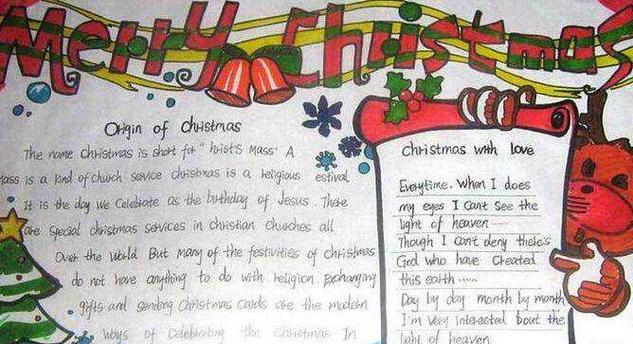 Merry Christmas
Origin of Christmas
The name Christmas is short for "hrist's Mass" A
ass is a kind of church service christmas is a religious estival
It is the day we celebrate as the birthday of Jesus. There
are special christmas services in christian churches all
Over the World But many of the festivities of christmas
do not have anything to do with religion. Exchanging
gifts and sending Christmas cards are the modern
ways of Celebrating the Christmas In
Christmas with love
Everytime. When I does
my eyes I can't see the
light of heaven
Though I can't deny there's
God who have Created
this earth
Day by day month by month
I'm very interested 'bout the
light of heaven